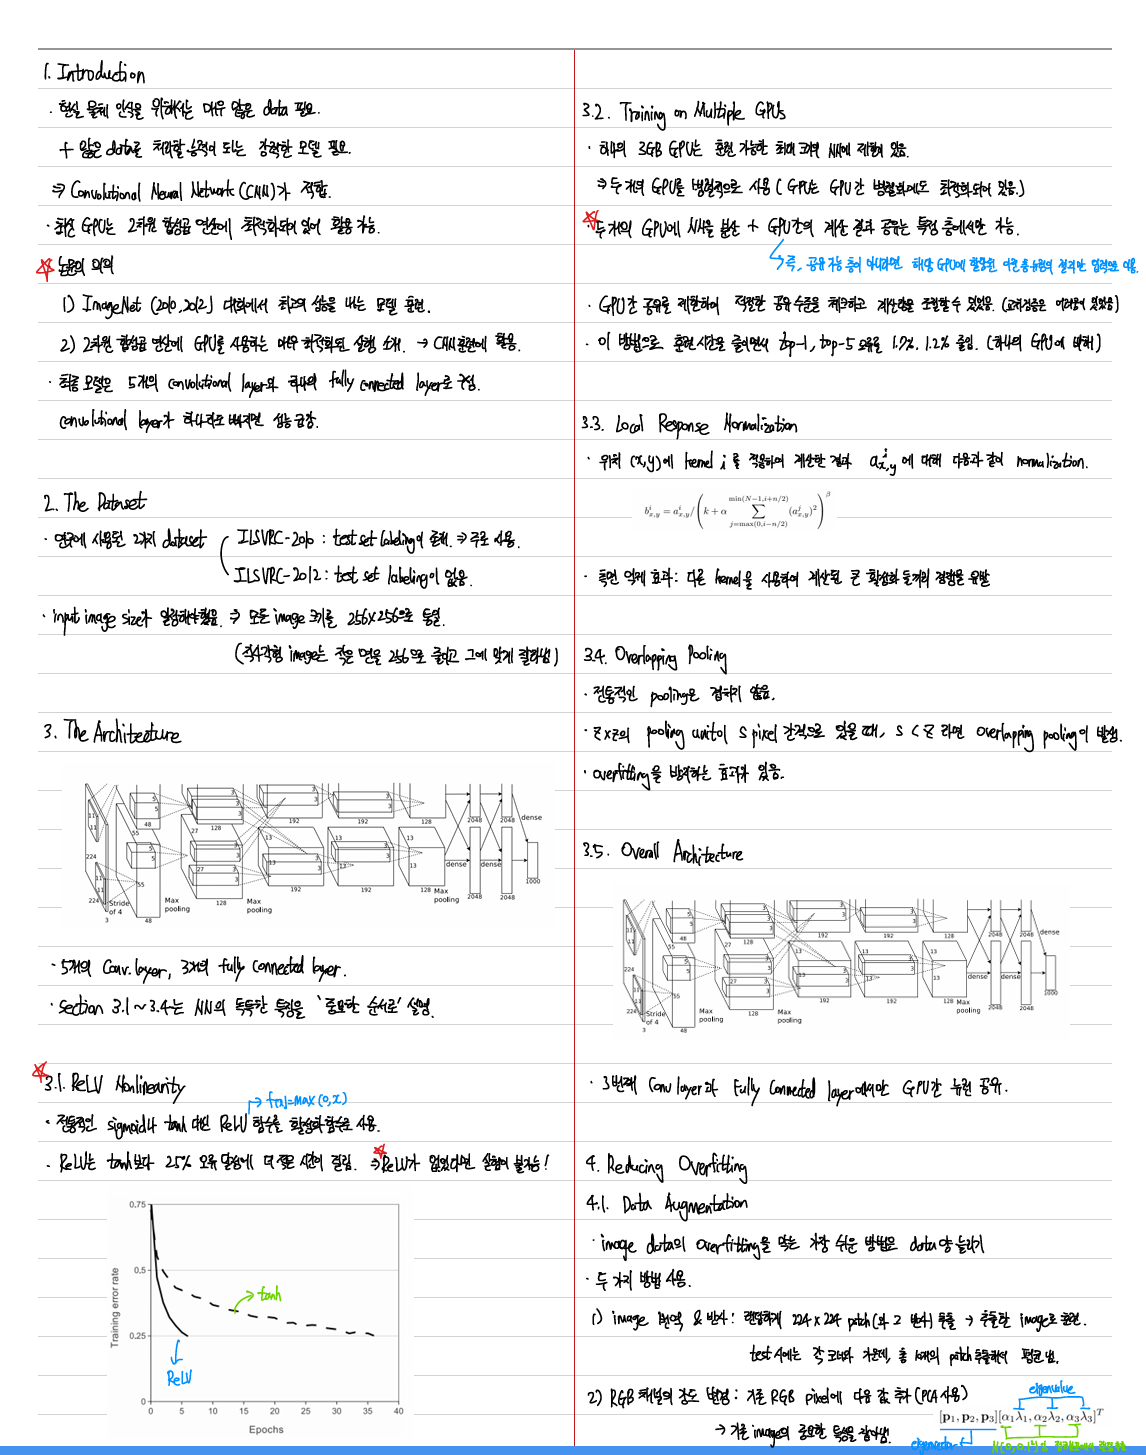 1. Introduction
· 현실 물체 인식을 위해서는 매우 많은 data 필요.
+ 많은 data를 처리할 능력이 되는 강력한 모델 필요.
⇒ Convolutional Neural Network(CNN)가 적합.
· 최신 GPU는 2차원 합성곱 연산에 최적화되어 있어 활용 가능.
☆ 논문의 의의
1) ImageNet (2010, 2012) 대회에서 최고의 성능을 내는 모델 훈련.
2) 2차원 합성곱 연산에 GPU를 사용하는 매우 최적화된 실행 소개. → CNN 훈련에 활용.
· 최종 모델은 5개의 convolutional layer와 하나의 fully connected layer로 구성.
convolutional layer가 하나라도 빠지면 성능 급감.
2. The Dataset
· 연구에 사용된 2가지 dataset
ILSVRC-2010 : test set labeling이 존재. ⇒ 주로 사용.
ILSVRC-2012 : test set labeling이 없음.
· input image size가 일정해야했음. ⇒ 모든 image 크기를 256×256으로 통일.
(직사각형 image는 작은 면을 256으로 줄이고 그에 맞게 잘라냄)
3. The Architecture
11 11 224 5 5 55 48 3 3 27 128 3 3 192 192 128 2048 2048 dense
11 11 224 3 Stride of 4 5 5 55 48 Max pooling 3 3 27 3 3 128 Max pooling 13 3 3 192 13 3 3 192 13 13 128 Max pooling dense 2048 dense 2048 1000
· 5개의 Conv.layer, 3개의 fully connected layer.
· section 3.1~3.4는 NN의 독특한 특징을 '중요한 순서로' 설명.
☆ 3.1. ReLU Nonlinearity
→ f(x)=max(0,x)
· 전통적인 sigmoid나 tanh 대신 ReLU 함수를 활성화함수로 사용.
· ReLU는 tanh보다 25% 오류 달성에 더 적은 시간이 걸림. ⇒ ☆ ReLU가 없었다면 실험이 불가능!
0.75
0.5
0.25
0
Training error rate
tanh
ReLU
0 5 10 15 20 25 30 35 40
Epochs
3.2. Training on Multiple GPUs
· 하나의 3GB GPU는 훈련 가능한 최대 크기의 NN에 제한이 있음.
⇒ 두 개의 GPU를 병렬적으로 사용 ( GPU는 GPU간 병렬화에도 최적화되어 있음.)
☆ · 두 개의 GPU에 NN을 분산 + GPU간의 계산 결과 공유는 특정 층에서만 가능.
즉, 공유 가능 층이 아니라면 해당 GPU에 할당된 이전 층 뉴런의 결과만 입력으로 이용.
· GPU간 공유를 제한하여 적절한 공유 수준을 체크하고 계산량을 조절할 수 있었음. (교차검증은 어려움이 있었음)
· 이 방법으로 훈련 시간은 줄이면서 top-1, top-5 오류율 1.7%. 1.2% 줄임. (하나의 GPU에 비해)
3.3. Local Response Normalization
· 위치 (x,y)에 kernel i 를 적용하여 계산한 결과 a^i_{x,y} 에 대해 다음과 같이 normalization.
b^i_{x,y} = a^i_{x,y} / ( k + α ∑_{j=max(0,i−n/2)}^{min(N−1,i+n/2)} (a^j_{x,y})² )^β
· 측면 억제 효과 : 다른 kernel을 사용하여 계산된 큰 활성화 들끼리 경쟁을 유발
3.4. Overlapping Pooling
· 전통적인 pooling은 겹치지 않음.
· z×z의 pooling unit이 s pixel 간격으로 있을 때, s < z 라면 overlapping pooling이 발생.
· overfitting을 방지하는 효과가 있음.
3.5. Overall Architecture
11 11 224 5 5 48 3 3 128 192 192 128 2048 2048 dense
11 11 224 3 Stride of 4 5 5 55 48 Max pooling 3 3 27 3 3 128 Max pooling 13 3 3 192 13 3 3 192 13 13 128 Max pooling dense dense 2048 2048 1000
· 3번째 Conv layer과 Fully Connected layer에서만 GPU간 뉴런 공유.
4. Reducing Overfitting
4.1. Data Augmentation
· image data의 overfitting을 막는 가장 쉬운 방법은 data양 늘리기
· 두 가지 방법 사용.
1) image 번역 & 반사 : 랜덤하게 224×224 patch(와 그 반사) 추출 → 추출한 image로 훈련.
test시에는 각 코너와 가운데, 총 10개의 patch 추출하여 평균 냄.
2) RGB 채널의 강도 변경 : 기존 RGB pixel에 다음 값 추가 (PCA 사용)
eigenvalue
[p₁, p₂, p₃][α₁λ₁, α₂λ₂, α₃λ₃]^T
→ 기존 image의 중요한 특성을 잡아냄.